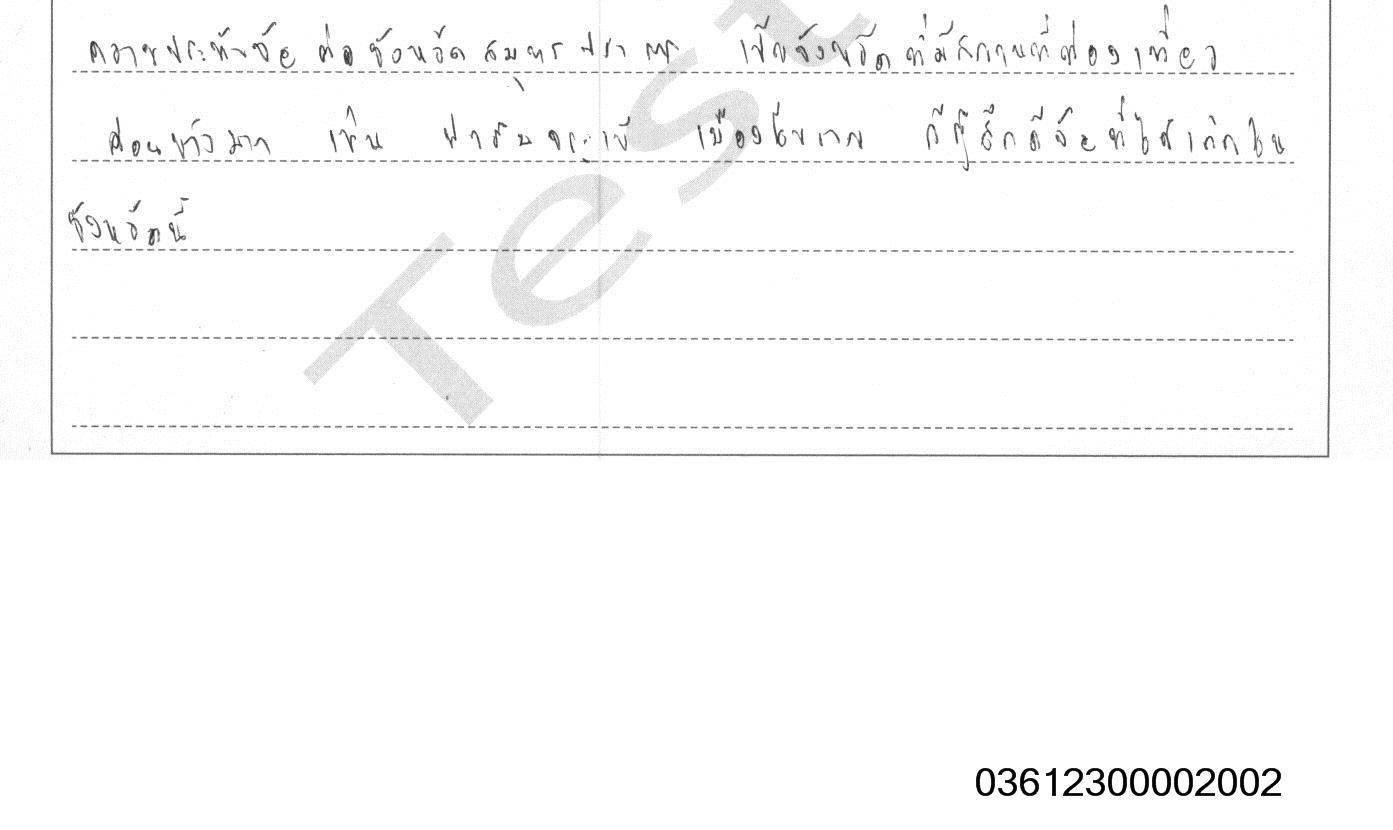 ความประทับใจ ต่อ จังหวัด สมุทร ปรา การ เป็นจังหวัด ที่มีสถานที่ท่องเที่ยว
ค่อนข้างมาก เช่น ฟาร์มจระเข้ เมืองโบราณ ก็รู้สึกดีใจที่ได้เกิดใน
จังหวัดนี้
Test
03612300002002